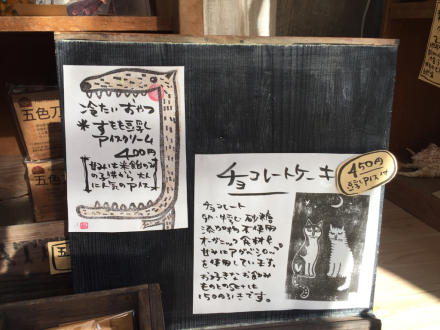 冷たいおやつ
すもも豆乳
アイスクリーム
400円
甘みは米飴の
お子様から大人
に人気のアイス
チョコレートケーキ
450円
豆乳アイス付
チョコレート
砂糖
添加物不使用
オーガニック食材を
甘みはアガベシロップ
を使用しています。
お好きなお飲み
ものとのSetは
150円引きです。
五色
五色